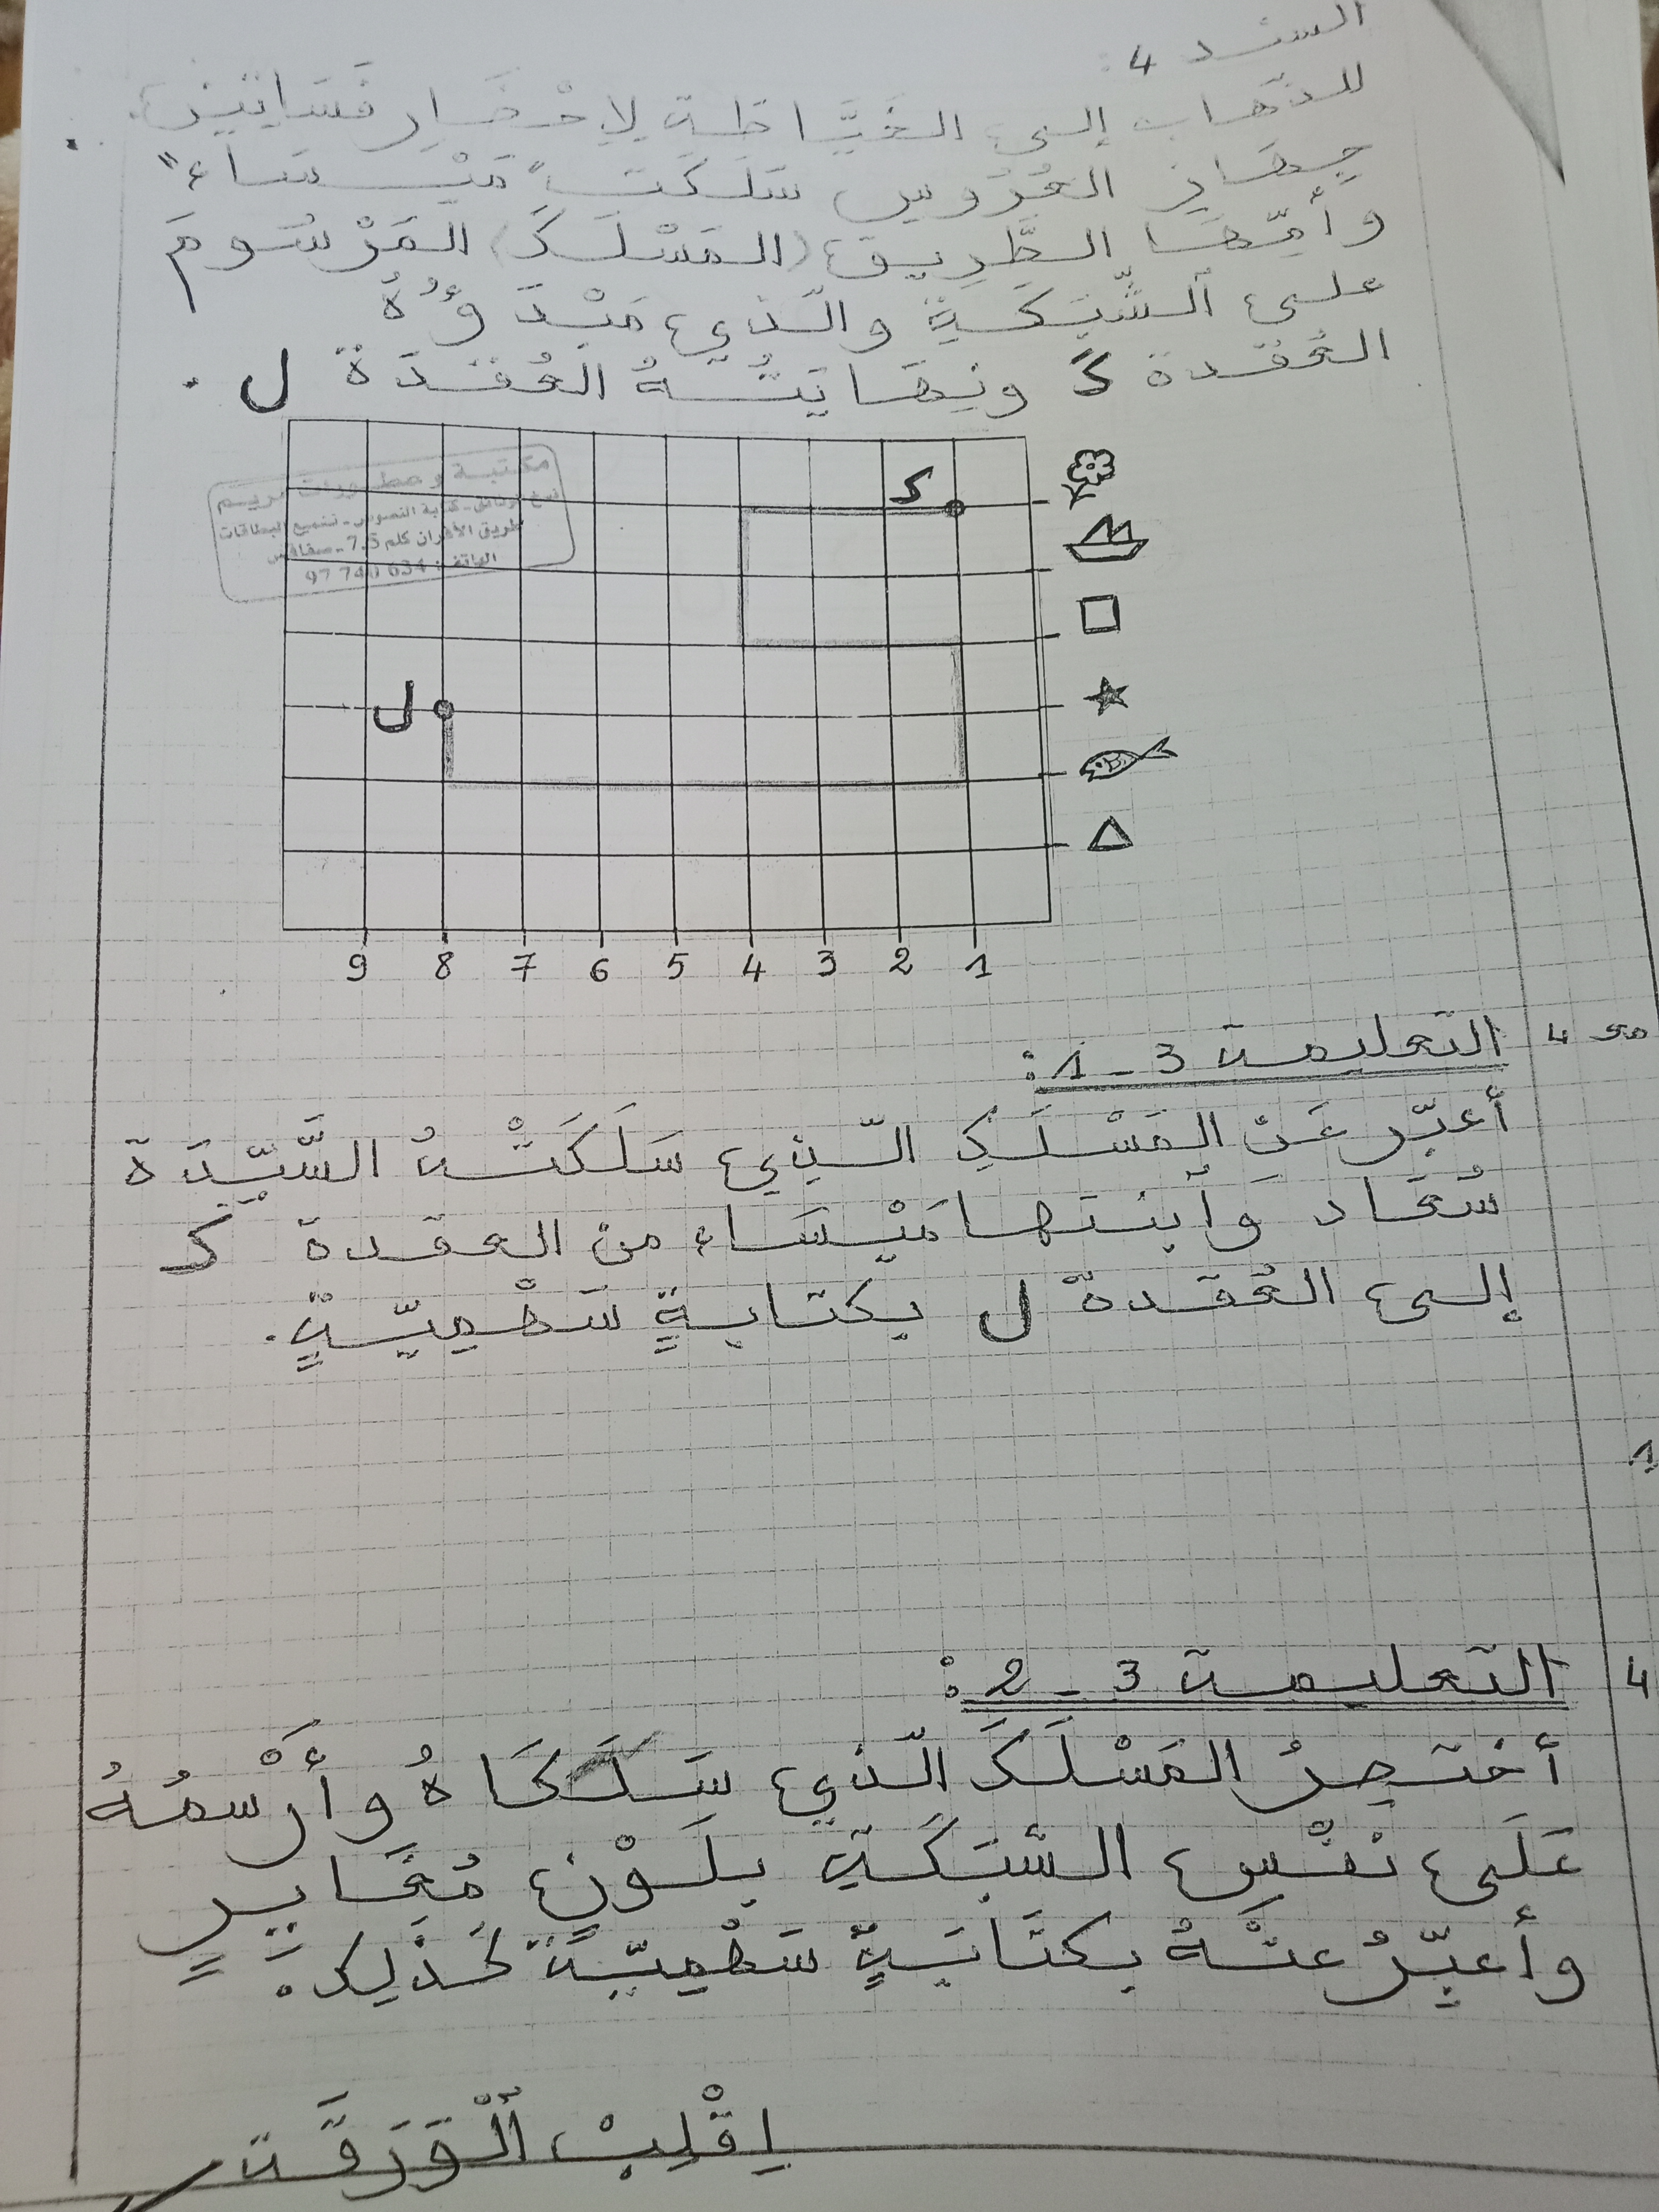 السند 4:
للذهاب إلى الخَيَّاطَةِ لِإحْضَارِ فَسَاتِينِ
جِهَازِ العَرُوسِ سَلَكَتْ "مَيْسَاءُ"
وأمّهَا الطَّرِيقَ (المَسْلَكَ) المَرْسُومَ
على الشّبَكَةِ والّذي مَبْدَؤُهُ
العُقدة ك ونِهَايَتُهُ العُقْدَة ل.
مكتبة و مطبوعات مريم
نسخ الوثائق - كتابة النصوص - تشميع البطاقات
طريق الأفران كلم 7.5 - صفاقس
الهاتف: 97 740 634
ك
ل
9 8 7 6 5 4 3 2 1
مع 4
التعليمة 3 - 1:
أعبّر عَنْ المَسْلَكِ الّذي سَلَكَتْهُ السَّيِّدَة
سُعَاد وَابنتها مَيْسَاء من العقدة ك
إلى العُقدة ل بكتابةٍ سَهْمِيّةٍ.
1
4
التعليمة 3 - 2:
أختصِرُ المَسْلَكَ الّذي سَلَكَاهُ وأَرْسمُهُ
عَلَى نفْس الشّبَكَةِ بِلَوْنٍ مُغَايِرٍ
وأعبّرُ عنْهُ بكتَابَةٍ سَهْمِيّةٍ كَذَلِكَ.
اِقْلِبْ اَلْوَرَقَة